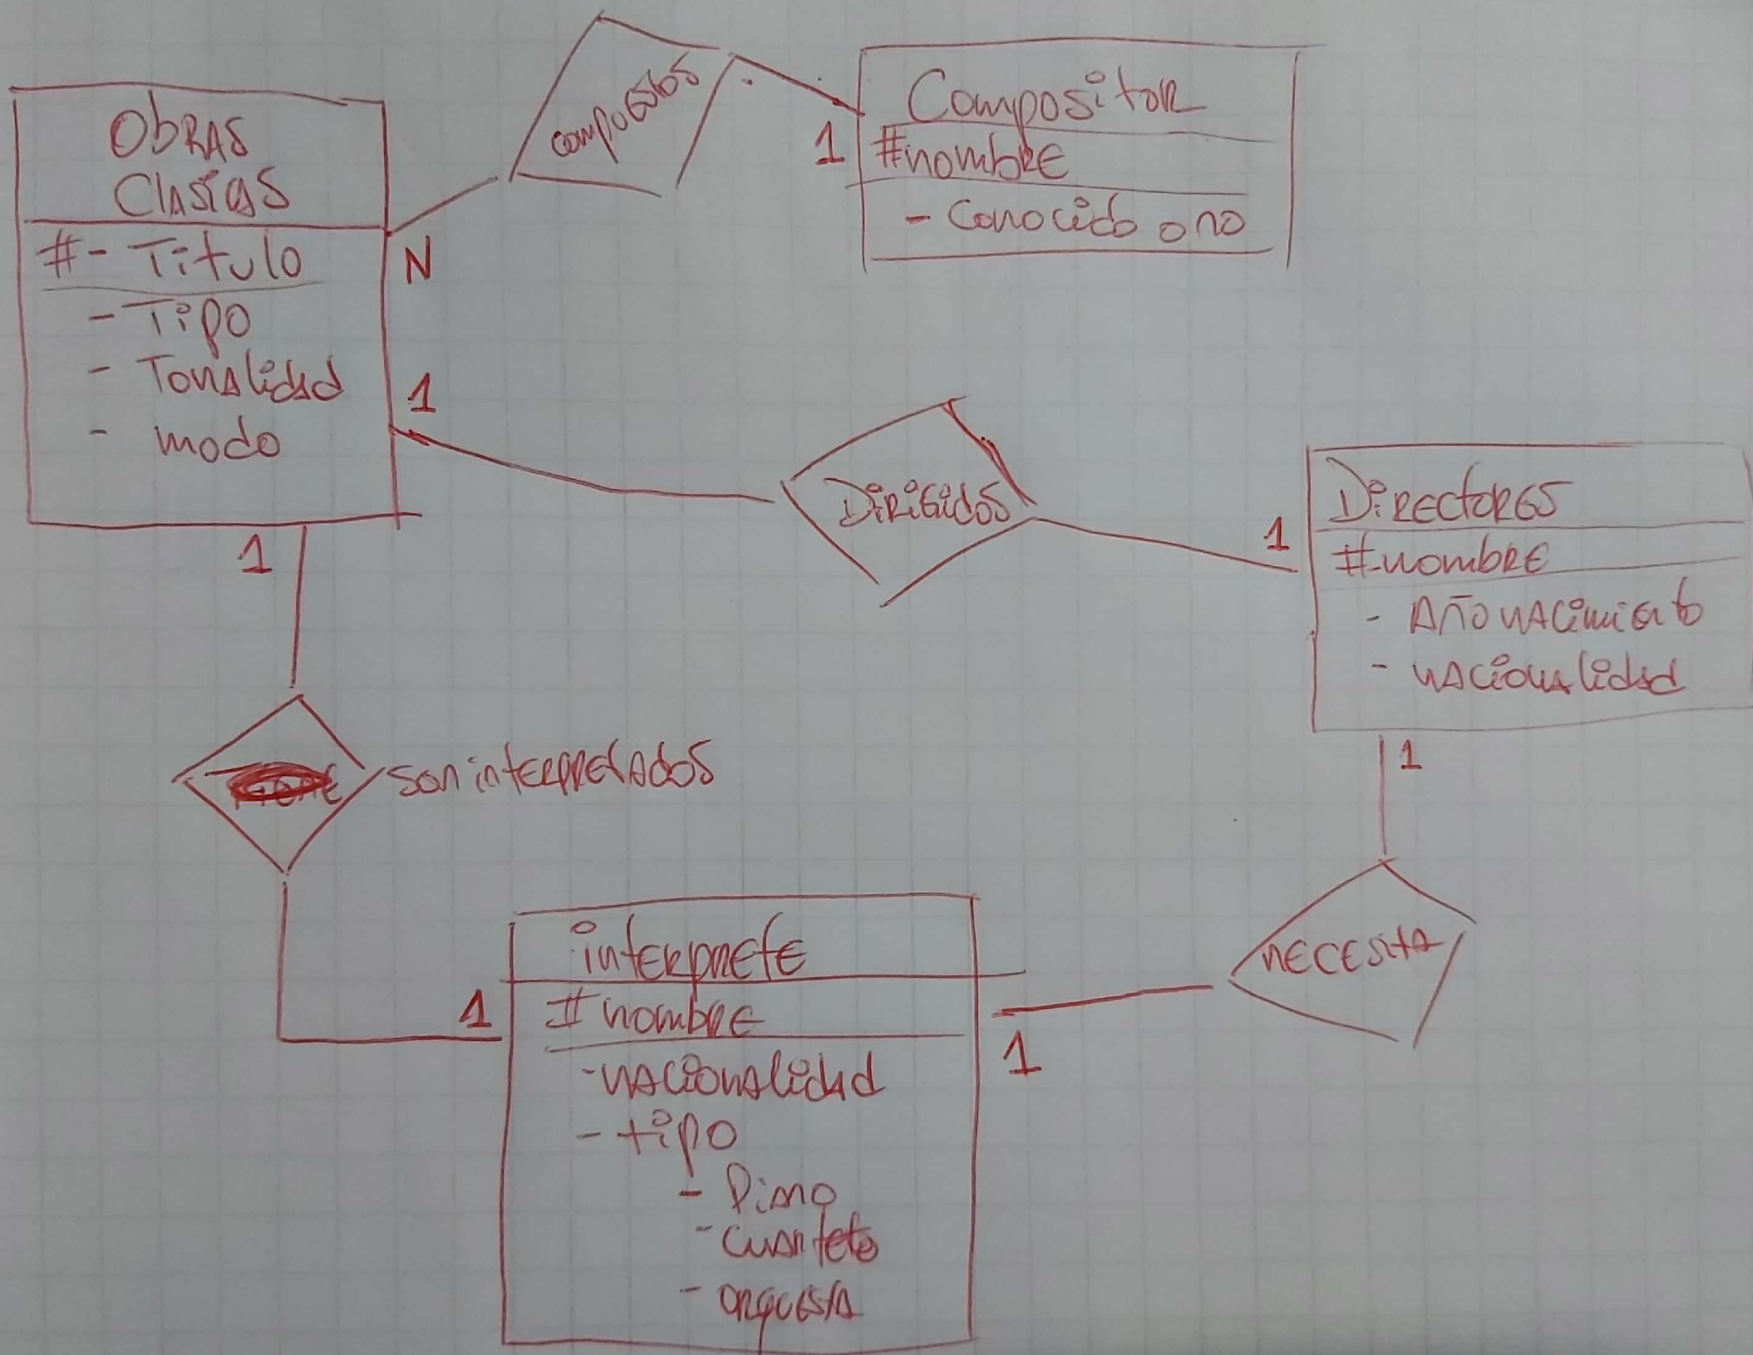 ObRAS
ClasicaS
#- Titulo
- Tipo
- Tonalidad
- modo
N
compuestos
1
Compositor
#nombre
- Conocido o no
1
DiRiGidos
1
DiRectores
#-nombre
- Año nacimiento
- nacionalidad
1
son interpretados
1
necesita
1
interprete
# nombre
-nacionalidad
- tipo
- Piano
- cuarteto
- orquesta
1